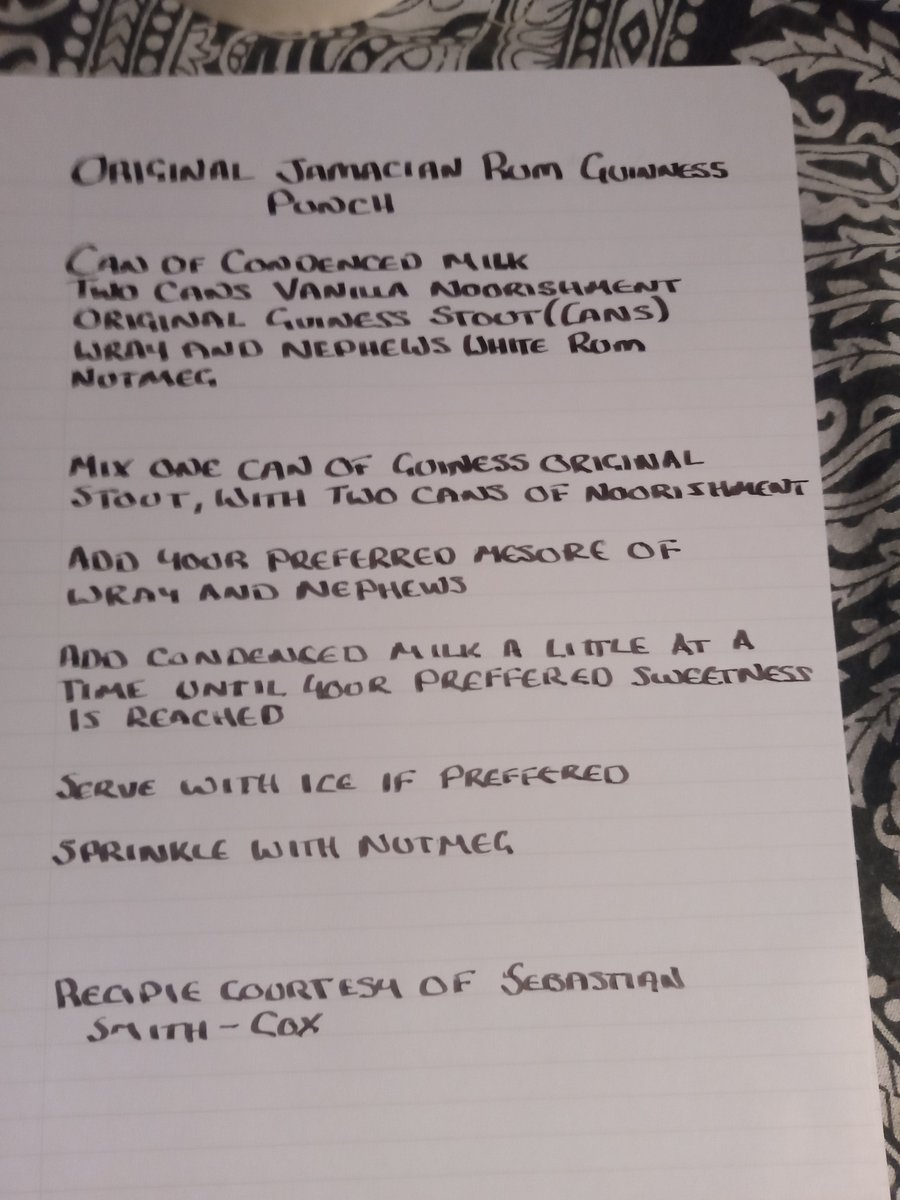 ORIGINAL JAMACIAN RUM GUINNESS
PUNCH
CAN OF CONDENCED MILK
TWO CANS VANILLA NOORISHMENT
ORIGINAL GUINESS STOUT (CANS)
WRAY AND NEPHEWS WHITE RUM
NUTMEG
MIX ONE CAN OF GUINESS ORIGINAL
STOUT, WITH TWO CANS OF NOORISHMENT
ADD YOUR PREFERRED MESORE OF
WRAY AND NEPHEWS
ADD CONDENCED MILK A LITTLE AT A
TIME UNTIL YOOR PREFFERED SWEETNESS
IS REACHED
SERVE WITH ICE IF PREFFERED
SPRINKLE WITH NUTMEG
RECIPIE COURTESY OF SEBASTIAN
SMITH - COX